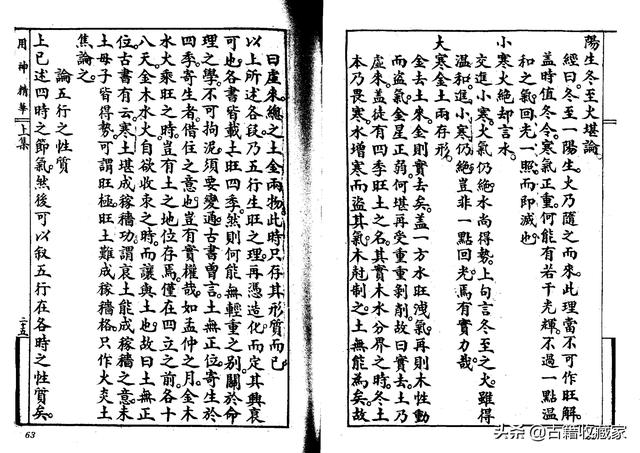 陽生冬至火堪論
經曰冬至一陽生。火乃隨之而來。此理當不可作旺解。
蓋時值冬令。寒氣正重。何能有若干光輝。不過一點溫
和之氣。回光一照而即滅也。
小寒火絕却言水
交進小寒。火氣仍絕。水尚得勢。上句言冬至之火。雖得
溫和。進小寒仍絕。豈非一點回光。焉有實力哉
大寒金土兩存形
金去土來。金則實去矣。蓋一方水旺洩氣。再則木性動
而盜氣。金星正弱。何堪再受重重剝削。故曰實去。土乃
虛來。蓋徒有四季旺土之名。其實木水分界之時。冬土
本乃畏寒。水增寒而盜其氣。木尅制之。土無能為矣。故
曰虛來。總之土金兩物。此時只存其形質而已
以上所述各段。乃五行生旺之理。再憑造化而定其興衰
可也。各書皆載土旺四季。然則何能無輕重之別。關於命
理之學。不可拘泥。須要變通。古書曾言。土無正位。寄生於
四季。寄生者。借住之意也。豈有實權哉。如孟仲之月。金木
水火乘旺之時。豈有土之地位存焉。僅在四立之前。各十
八天。金木水火。自欲收束之時。而讓與土也。故曰土無正
位。古書有云。寒土堪成稼穡功。謂衰土能成稼穡之意。未
土母子皆得勢。可謂旺極。旺土難成稼穡格。只作火炎土
焦論之。
論五行之性質
上已述四時之節氣。然後可以叙五行在各時之性質矣。
用神精華 上集
二五
63
头条 @古籍收藏家